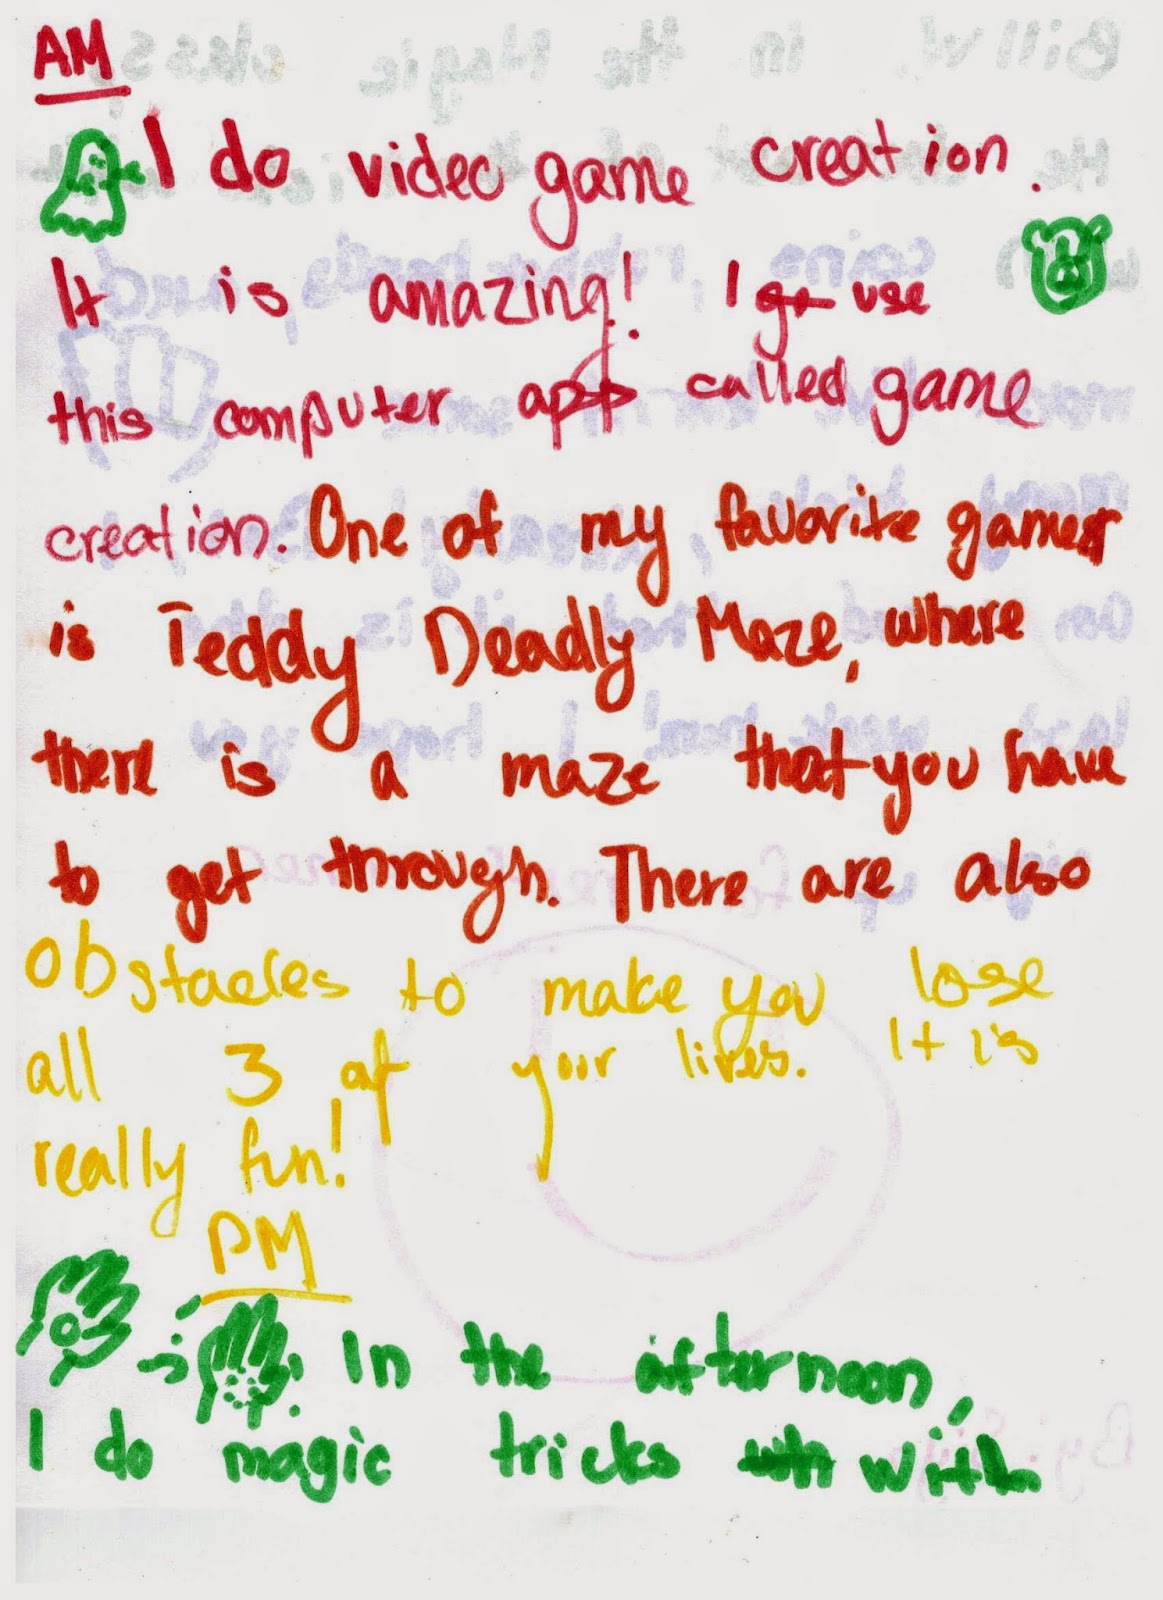 AM
I do video game creation.
It is amazing! I go use
this computer app called game
creation. One of my favorite games
is Teddy Deadly Maze, where
there is a maze that you have
to get through. There are also
obstacles to make you lose
all 3 of your lives. It is
really fun!
PM
In the afternoon,
I do magic tricks with